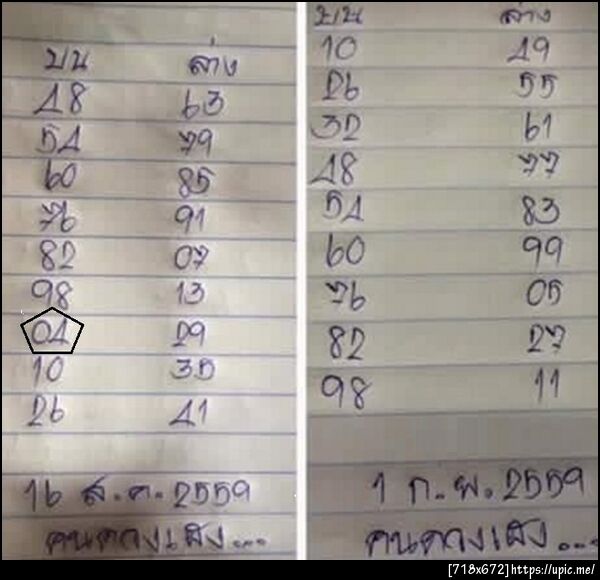 บน ล่าง
48 63
54 79
60 85
76 91
82 07
98 13
04 29
10 35
26 41
16 ส.ค. 2559
คนดวงเฮง...
บน ล่าง
10 49
26 55
32 61
48 77
54 83
60 99
76 05
82 27
98 11
1 ก.พ. 2559
คนดวงเฮง...
[718x672]https://upic.me/